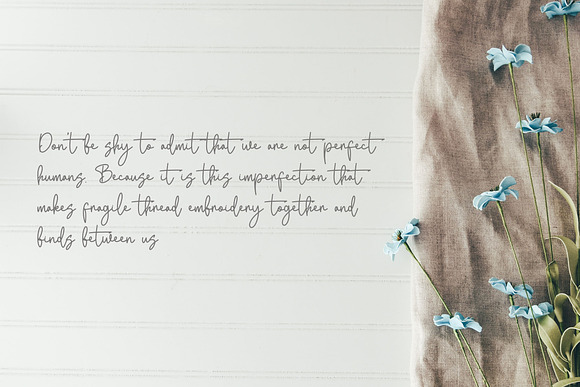 Don't be shy to admit that we are not perfect
humans. Because it is this imperfection that
makes fragile thread embroidery together and
binds between us